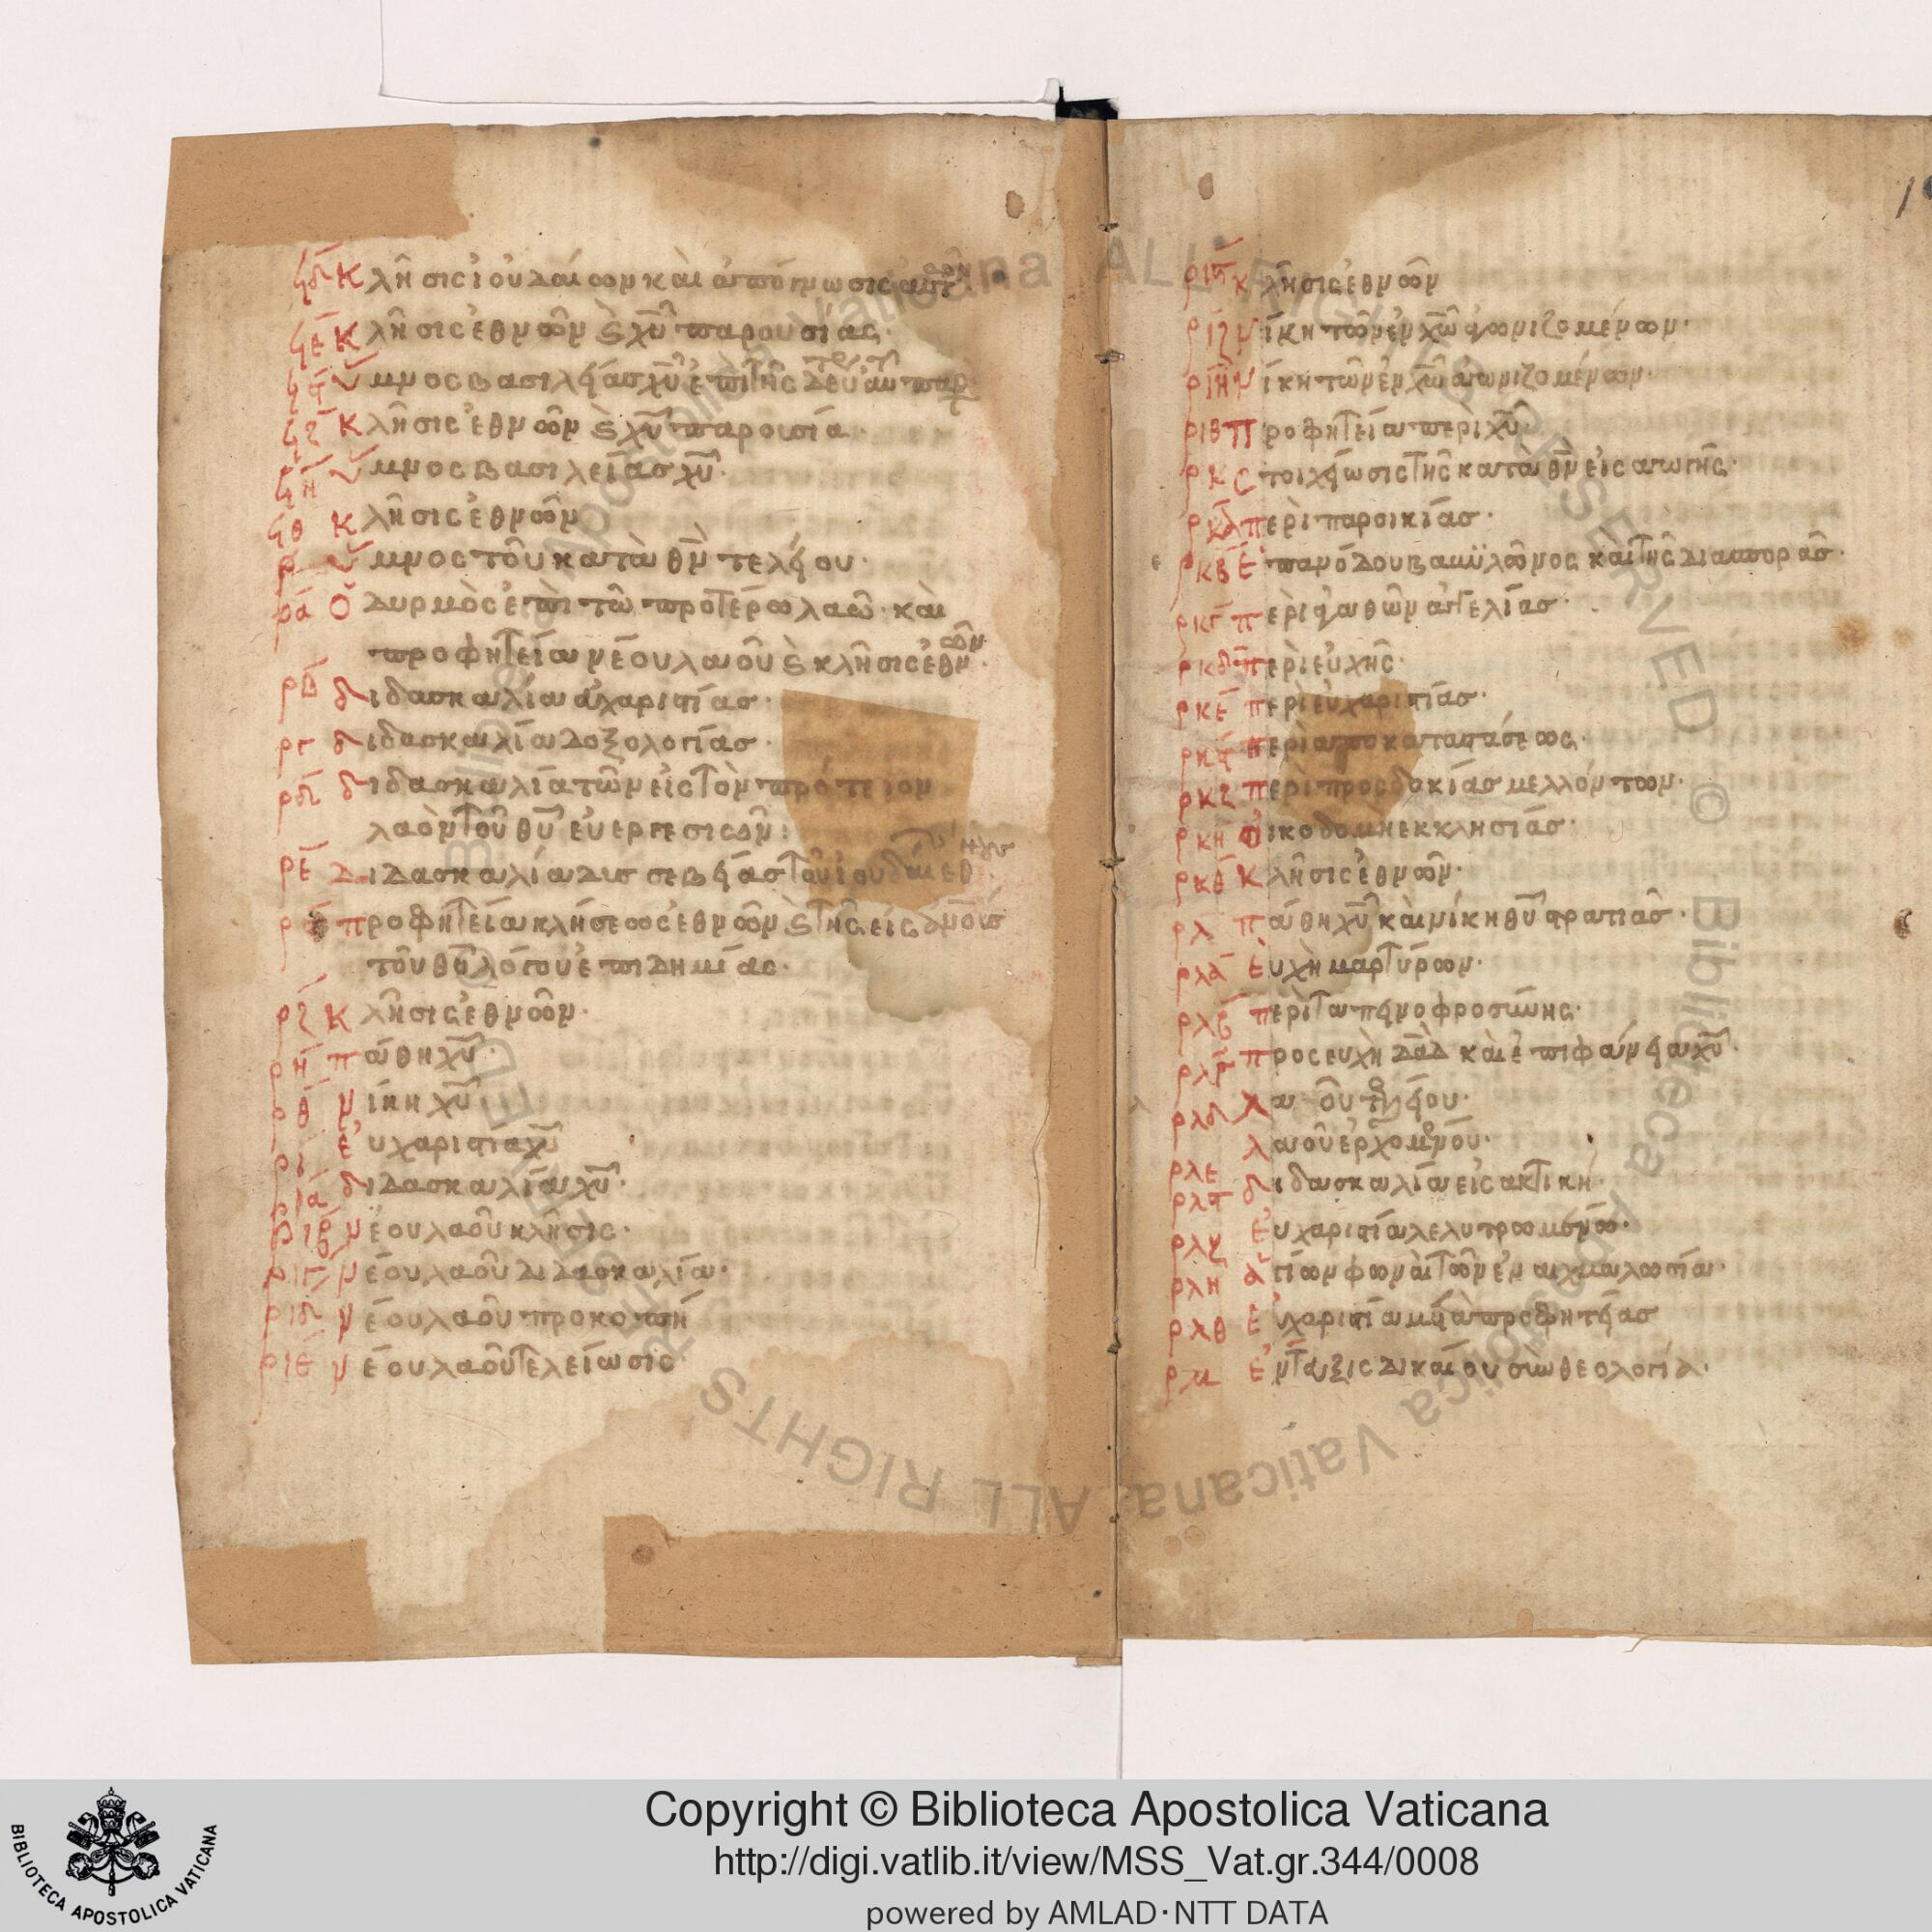 ϟδ Κλῆσις ἰουδαίων καὶ ἀπόγνωσις αὐτῶν
ϟε Κλῆσις ἐθνῶν ϗ χυ παρουσίας·
Ὕμνος βασιλείας χυ ἐπὶ τῆς δευτέρας αὐτοῦ παρ
ϟζ Κλῆσις ἐθνῶν ϗ χυ παρουσία
ϟη Ὕμνος βασιλείας χυ·
ϟθ Κλῆσις ἐθνῶν
ρ Ὕμνος τοῦ κατὰ θν τελείου·
ρα Ὀδυρμὸς ἐπὶ τῶ προτέρω λαῶ· καὶ
προφητεία νέου λαοῦ ϗ κλῆσις ἐθνῶν·
ρβ διδασκαλία εὐχαριστίας·
ργ διδασκαλία δοξολογίας·
ρδ διδασκαλία τῶν εἰς τὸν πρότερον
λαὸν τοῦ θυ εὐεργεσιῶν:
ρε Διδασκαλία δυσσεβείας τοῦ ἰουδαι
προφητεία κλήσεως ἐθνῶν ϗ τῆς εἰς
τοῦ θυ λόγου ἐπιδημίας·
ρζ Κλῆσις ἐθνῶν·
ρη πάθη χυ·
ρθ νίκη χυ
ρι εὐχαριστία χυ
ρια διδασκαλία χυ·
ριβ νέου λαοῦ κλῆσις·
ριγ νέου λαοῦ διδασκαλία·
ριδ νέου λαοῦ προκοπή
ριε νέου λαοῦ τελείωσις
ριϛ κλῆσις ἐθνῶν
ριζ νίκη τῶν ἐν χω ἀγωνιζομένων·
ριη νίκη τῶν ἐν χω ἀγωνιζομένων·
ριθ προφητεία περὶ χυ
ρκ στοιχείωσις τῆς κατὰ θν εἰσαγωγῆς·
ρκα περὶ παροικίας·
ρκβ ἐπανόδου βαβυλῶνος καὶ τῆς διασπορᾶς·
ρκγ περὶ ἀγαθῶν ἀγγελίας·
ρκδ περὶ εὐχῆς·
ρκε περὶ εὐχαριστίας·
ρκϛ περὶ ἀποκαταστάσεως·
ρκζ περὶ προσδοκίας μελλόντων·
ρκη οἰκοδομὴ ἐκκλησίας·
ρκθ Κλῆσις ἐθνῶν·
ρλ πάθη χυ καὶ νίκη θυ στρατιᾶς·
ρλα Εὐχὴ μαρτύρων·
ρλβ περὶ ταπεινοφροσύνης·
ρλγ προσευχὴ δαδ καὶ ἐπιφάνεια χυ·
ρλδ λαοῦ τελείου·
ρλε λαοῦ ἐρχομένου·
ρλϛ διδασκαλία εἰσακτική
ρλζ Εὐχαριστία λελυτρωμένων·
ρλη ἁγίων φωναὶ τῶν ἐν αἰχμαλωσία·
ρλθ Εὐχαριστία μετὰ προφητείας
ρμ Ἔνταξις δικαίου σὺν θεολογία·
Copyright © Biblioteca Apostolica Vaticana
http://digi.vatlib.it/view/MSS_Vat.gr.344/0008
powered by AMLAD·NTT DATA
BIBLIOTECA APOSTOLICA VATICANA